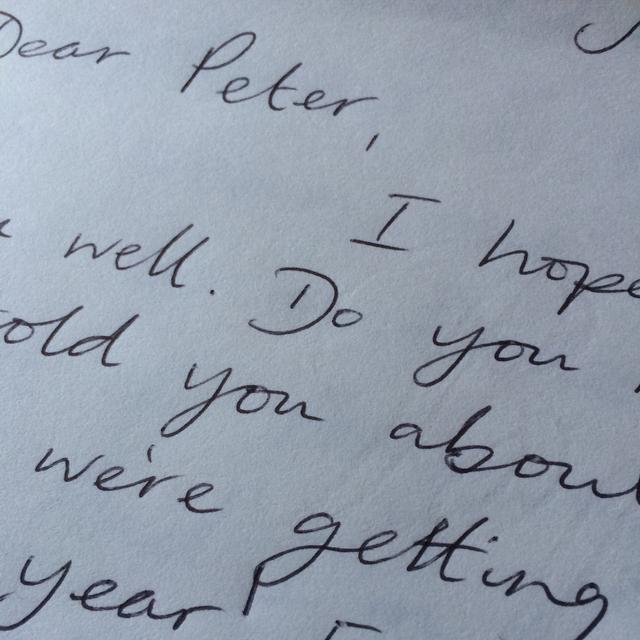 Dear Peter,
I hope
well. Do you
old you about
we're getting
year